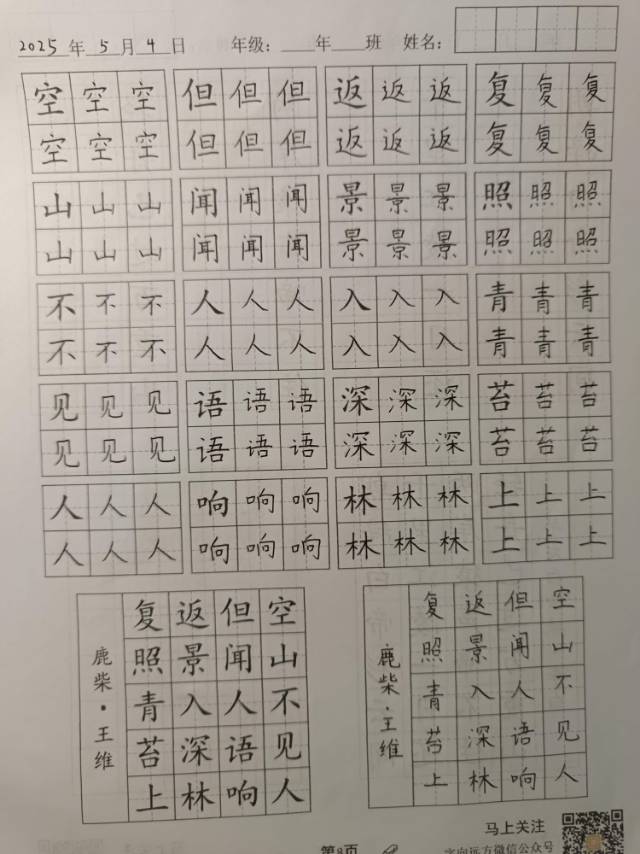 2025年5月4日 年级：____年____班 姓名：
空空空 但但但 返返返 复复复
空空空 但但但 返返返 复复复
山山山 闻闻闻 景景景 照照照
山山山 闻闻闻 景景景 照照照
不不不 人人人 入入入 青青青
不不不 人人人 入入入 青青青
见见见 语语语 深深深 苔苔苔
见见见 语语语 深深深 苔苔苔
人人人 响响响 林林林 上上上
人人人 响响响 林林林 上上上
空山不见人
但闻人语响
返景入深林
复照青苔上
鹿柴·王维
空山不见人
但闻人语响
返景入深林
复照青苔上
鹿柴·王维
马上关注
第8页
字向远方微信公众号